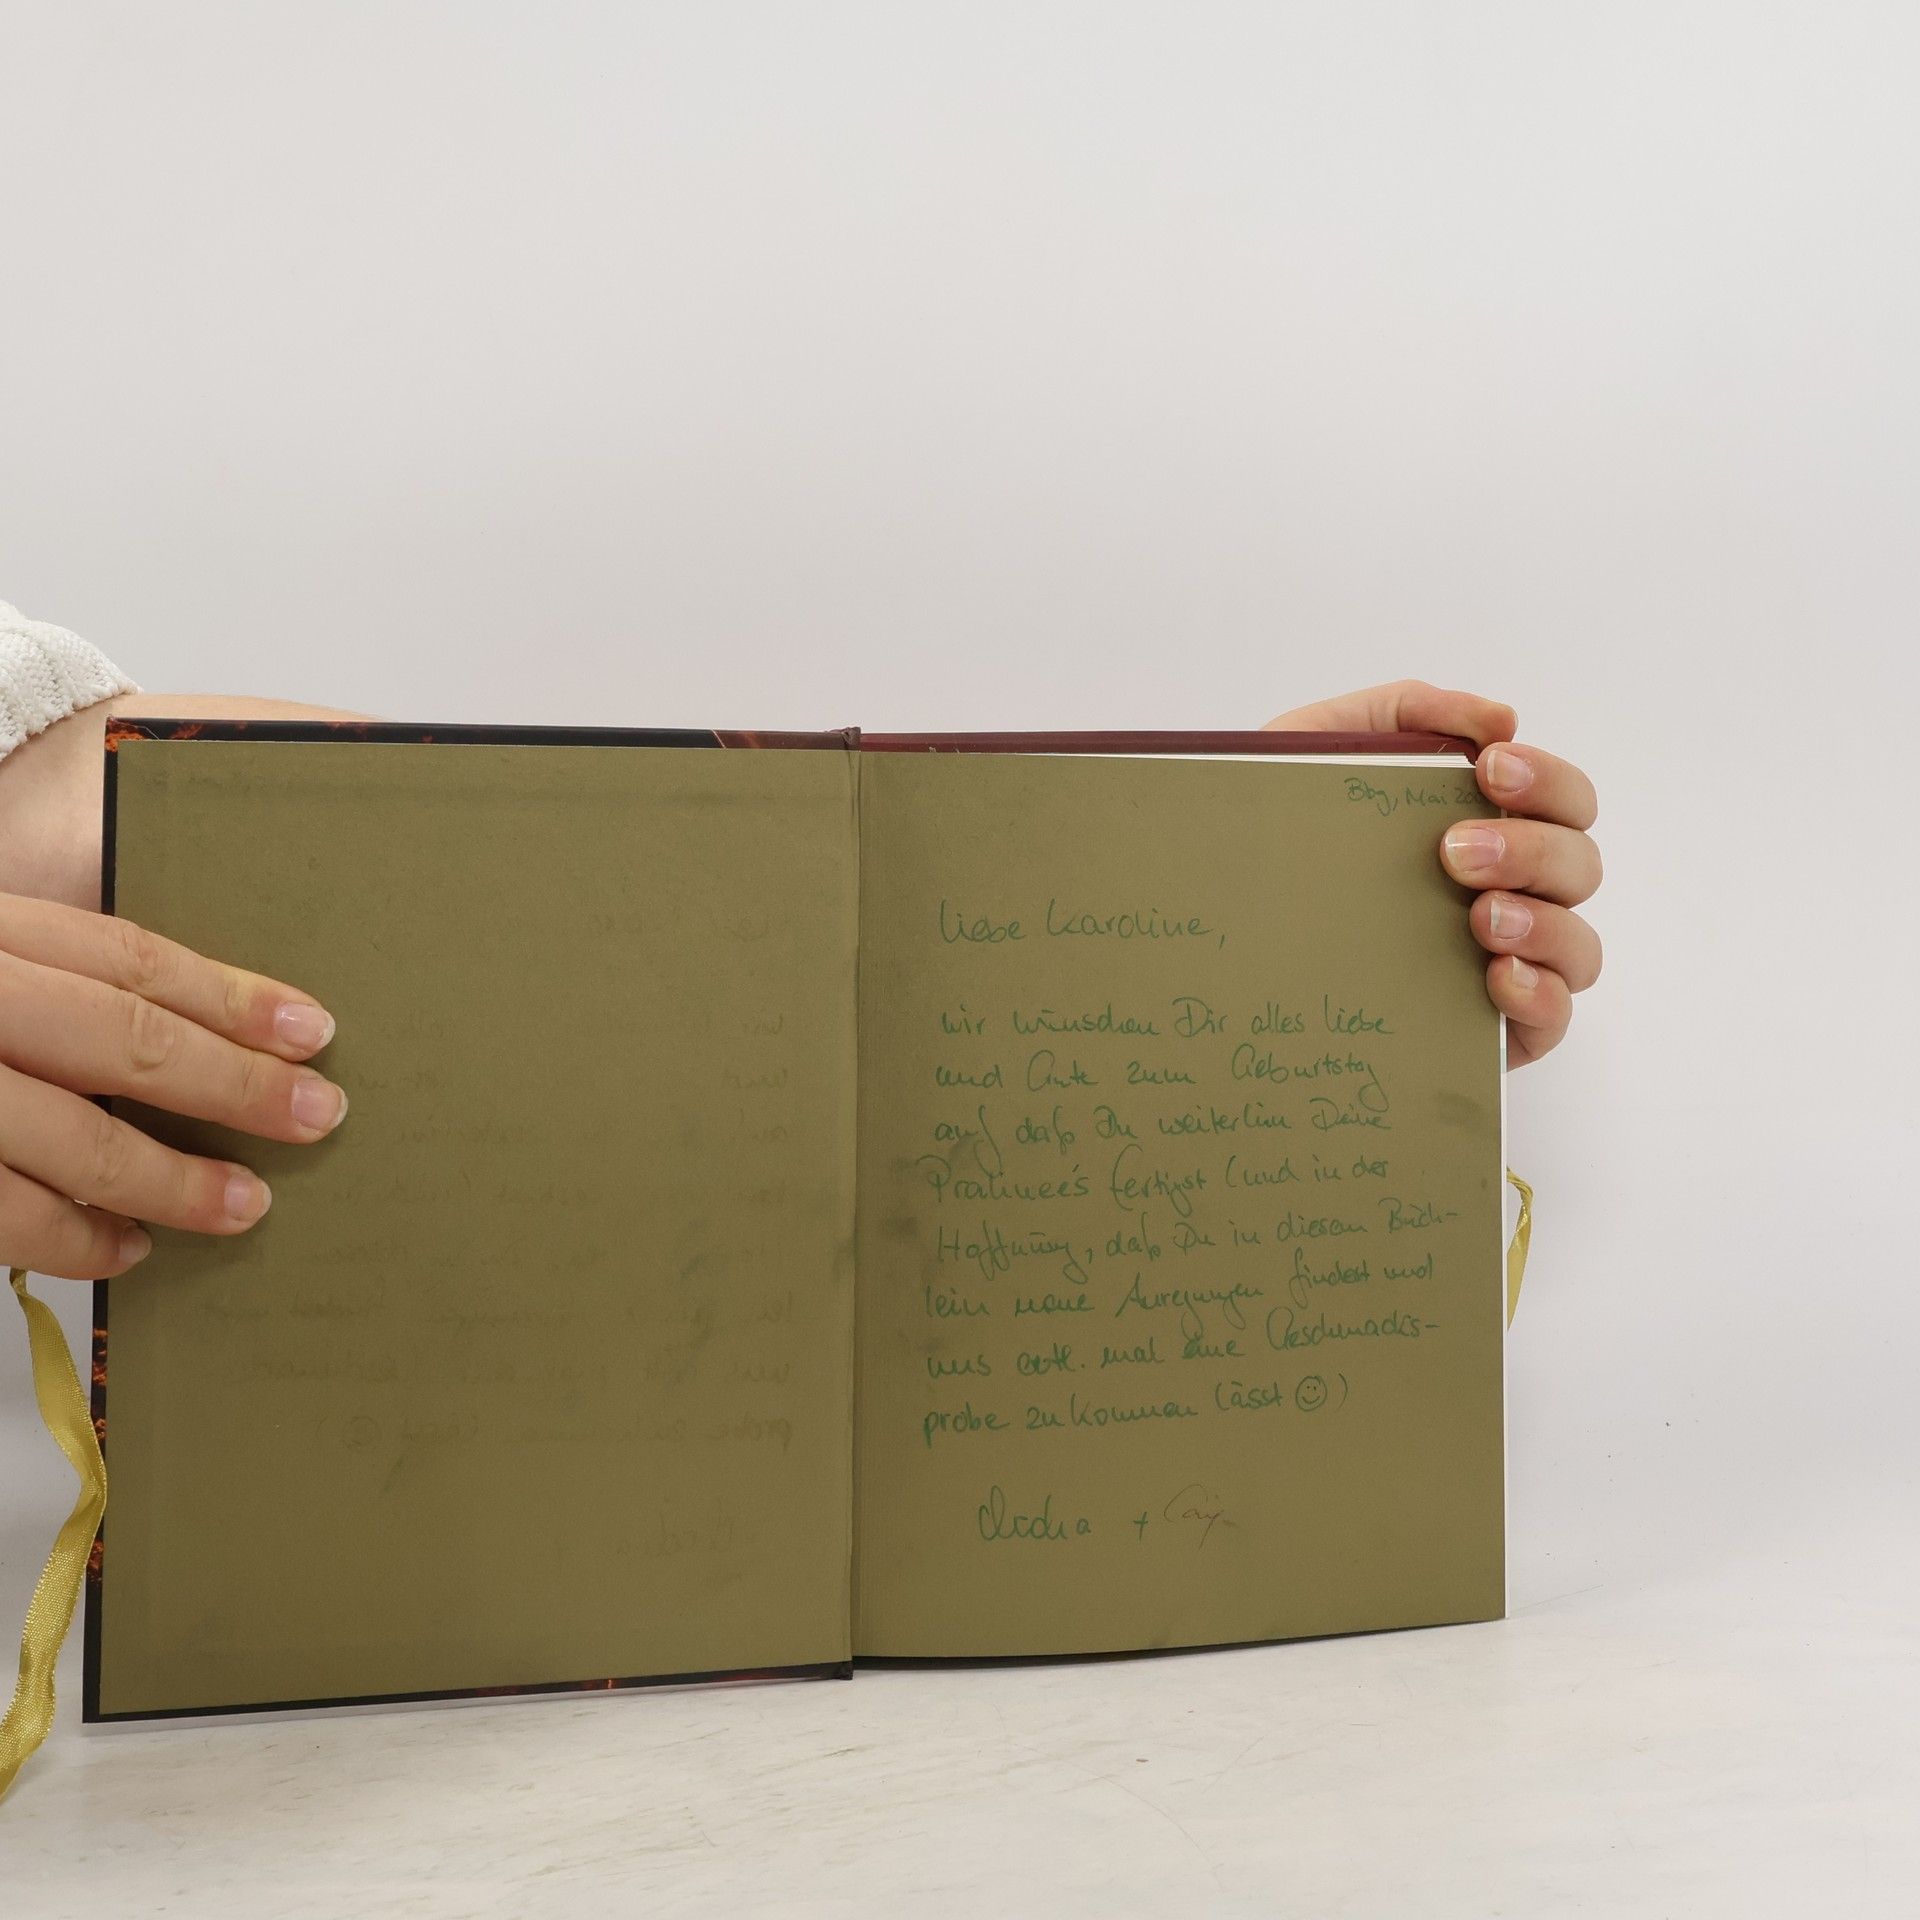 Bbg, Mai 200
Liebe Karoline,
wir wünschen Dir alles Liebe
und Gute zum Geburtstag
auf daß Du weiterhin Deine
Pralineé's fertigst (und in der
Hoffnung, daß Du in diesem Büch-
lein neue Anregungen findest und
uns evtl. mal eine Geschmacks-
probe zukommen lässt ☺)
+